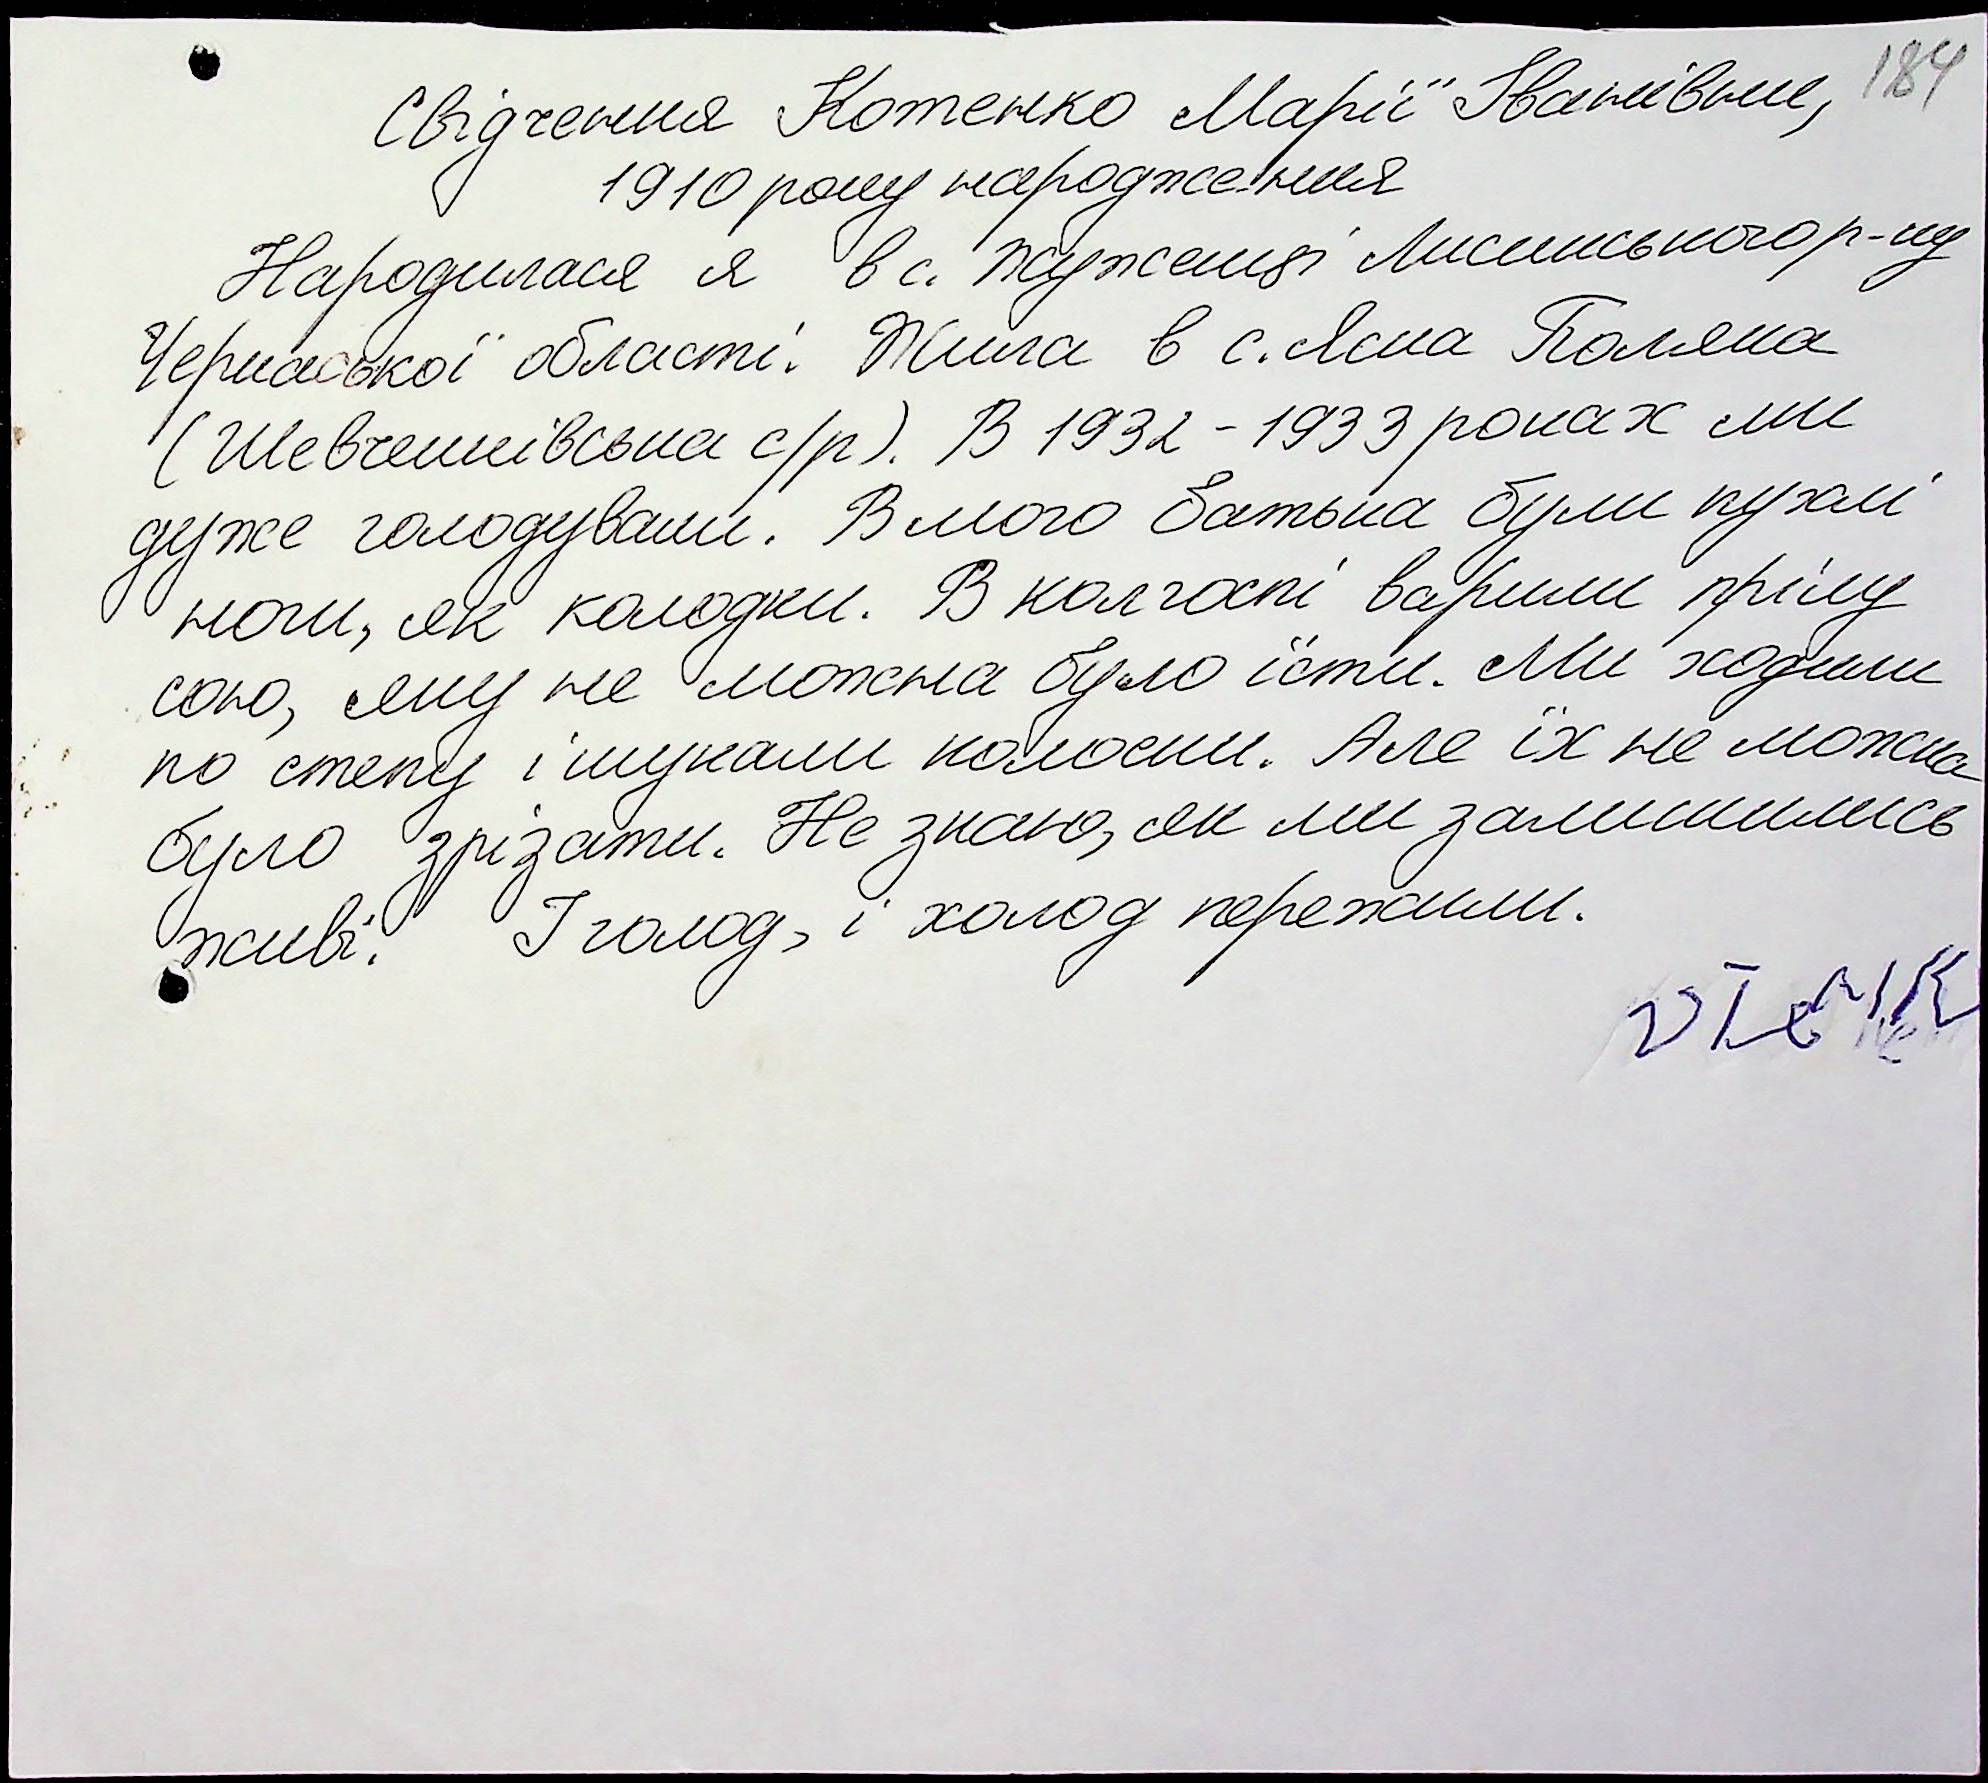 184
Свідчення Котенко Марії Іванівни,
1910 року народження
Народилася я в с. Жуженці Лисянського р-ну
Черкаської області. Жила в с. Ясна Поляна
(Шевченківська с/р). В 1932-1933 роках ми
дуже голодували. В мого батька були пухлі
ноги, як колодки. В колгоспі варили прілу
сою, яку не можна було їсти. Ми ходили
по степу і шукали колоски. Але їх не можна
було зрізати. Не знаю, як ми залишились
живі. І голод, і холод пережили.